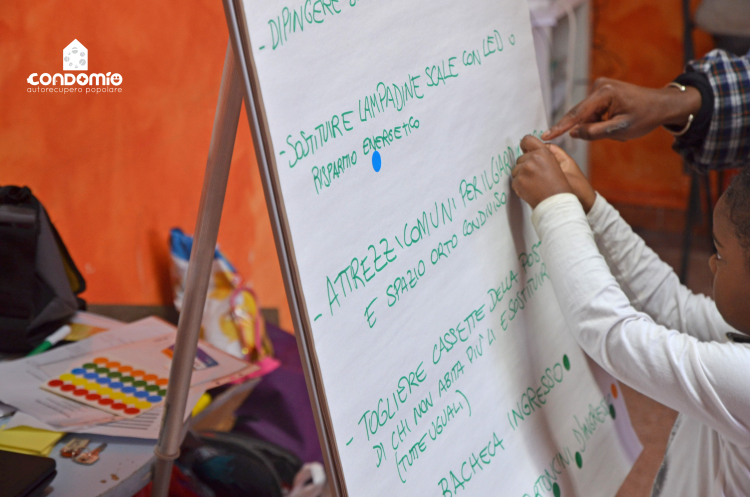 CONDOMIO
autorecupero popolare
- DIPINGERE
- SOSTITUIRE LAMPADINE SCALE CON LED
RISPARMIO ENERGETICO
- ATTREZZI COMUNI PER IL
E SPAZIO ORTO CONDIVISO
- TOGLIERE CASSETTE DELLA
DI CHI NON ABITA PIÙ LI E SOSTITUIR
(TUTTE UGUALI)
BACHECA INGRESSO
D'INGRE